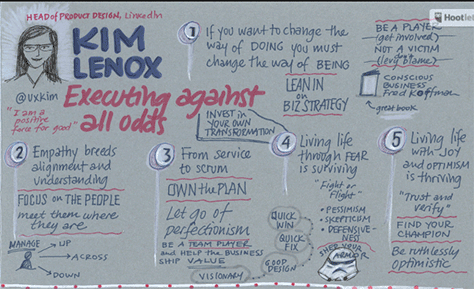 HEAD OF PRODUCT DESIGN, LinkedIn
KIM
LENOX
@uxkim
"I am a
positive
force for good"
Executing against
all odds
1 If you want to change the
way of DOING you must
change the way of BEING
LEAN IN
on
BIZ STRATEGY
INVEST in
YOUR OWN
TRANSFORMATION
BE A PLAYER
(get involved)
NOT A VICTIM
CONSCIOUS
BUSINESS
Fred Koffman
great book
Hootle
2 Empathy breeds
alignment and
understanding
FOCUS on THE PEOPLE
meet them where
they are
MANAGE
UP
ACROSS
DOWN
3 From service
to scrum
OWN the PLAN
Let go of
perfectionism
BE A TEAM PLAYER
and HELP the BUSINESS
SHIP VALUE
VISIONARY
GOOD
DESIGN
QUICK
FIX
QUICK
WIN
4 Living life
through FEAR
is surviving
"Fight or
Flight"
• PESSIMISM
• SKEPTICISM
• DEFENSIVE-
NESS
SHED YOUR
ARMOR
5 Living life
with JOY
and OPTIMISM
is thriving
"Trust and
verify"
FIND YOUR
CHAMPION
Be ruthlessly
optimistic.